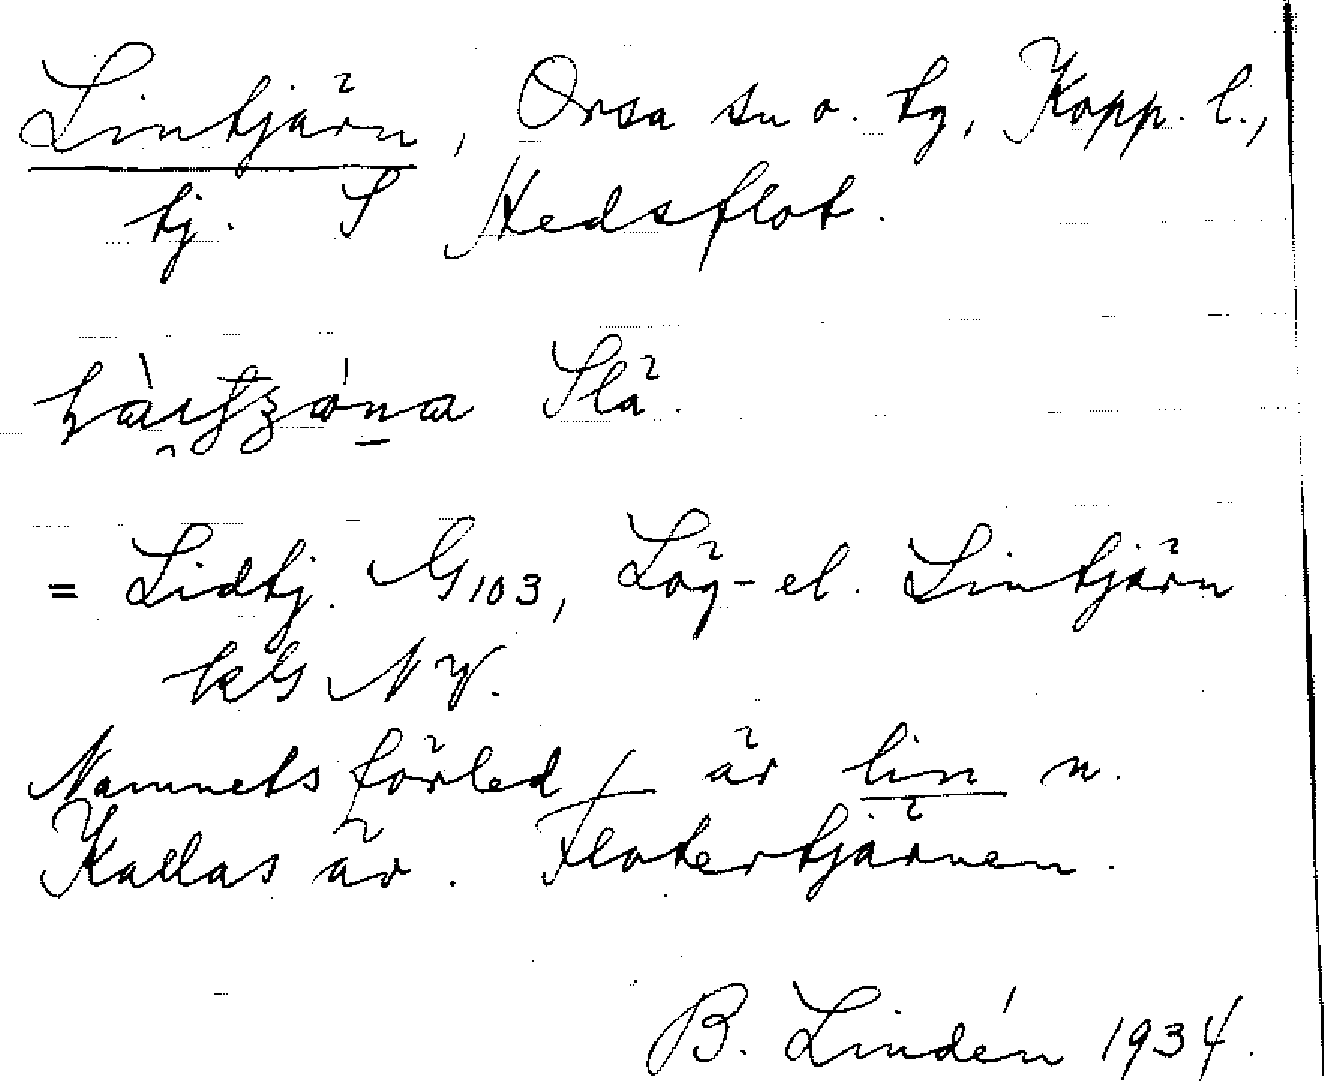 Lintjärn, Orsa sn o. tg, Kopp. l.,
tj. S Hedsflot.
Slä.
= Lidtj. G 103, Låg- el. Lintjärn
kG NV.
Namnets förled är lin n.
Kallas äv. Flotertjärnen.
B. Lindén 1934.